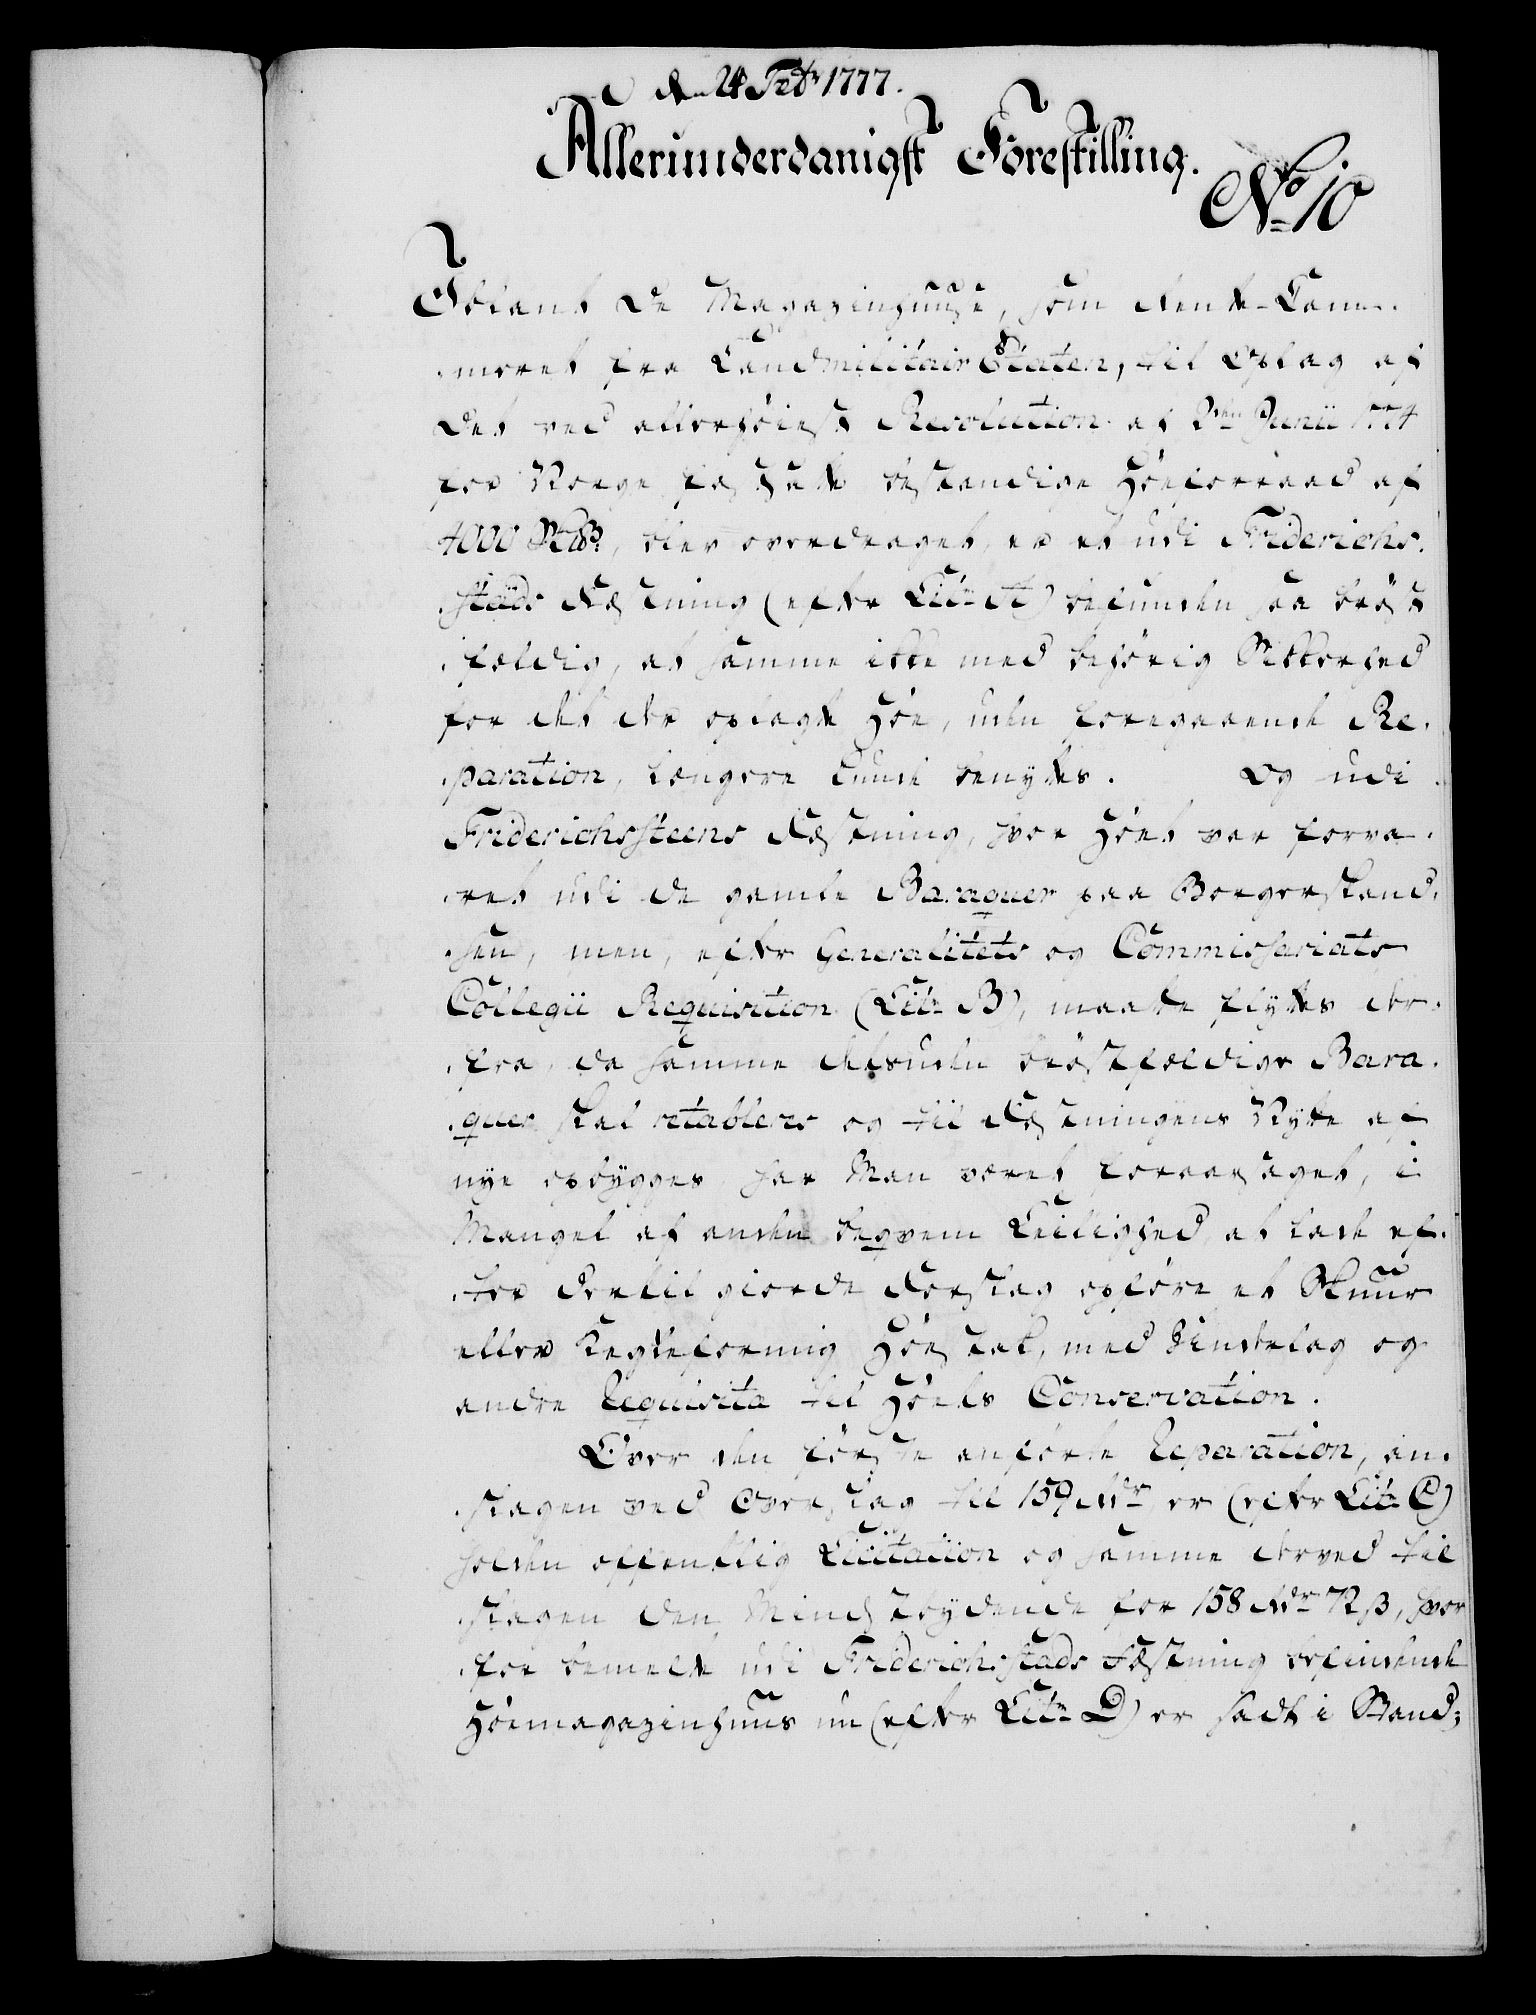 d. 24 Febr 1777.
Allerunderdanigst Forestilling.
No 10
Iblant de Magazinhuuse, som Rente-Cam-
meret fra Landmilitair Etaten, til Oplag af
det ved allerhöieste Resolution af 2den Junii 1774
for Norge fastsatte bestandige Höeforraad af
4000 , blev overdraget, er et udi Friderichs-
stads Fæstning (efter Litr A) befunden saa bröst-
fældig, at samme ikke med behörig Sikkerhed
for det der oplagte Höe, uden foregaaende Re-
paration, længere kunde benyttes. Og udi
Friderichssteens Fæstning, hvor Höet var forva-
ret udi de gamle Baraquer paa Borgerskand-
sen, men, efter Generalitets og Commissariats
Collegii Requisition (Litr B), maatte flyttes der-
fra, da samme desuden bröstfældige Bara-
quer skal retableres og til Fæstningens Nytte af
nye opbygges har Man været foraarsaget, i
Mangel af anden beqvem Leilighed, at lade ef-
ter dertil giorde Forslag opföre et Skuur
eller Kegleformig Höestak, med Underlag og
andre Requisita til Höets Conservation.
Over den förste anförte Reparation, an-
slagen ved Overslag til 159 Rdr er (efter Litr C)
holden offentlig Licitation og samme derved til-
slagen den Mindstbydende for 158 Rdr 72 ß, hvor-
for bemelte udi Friderichsstads Fæstning befindende
Höemagazinhuus nu (efter Litr D) er sadt i Stand;